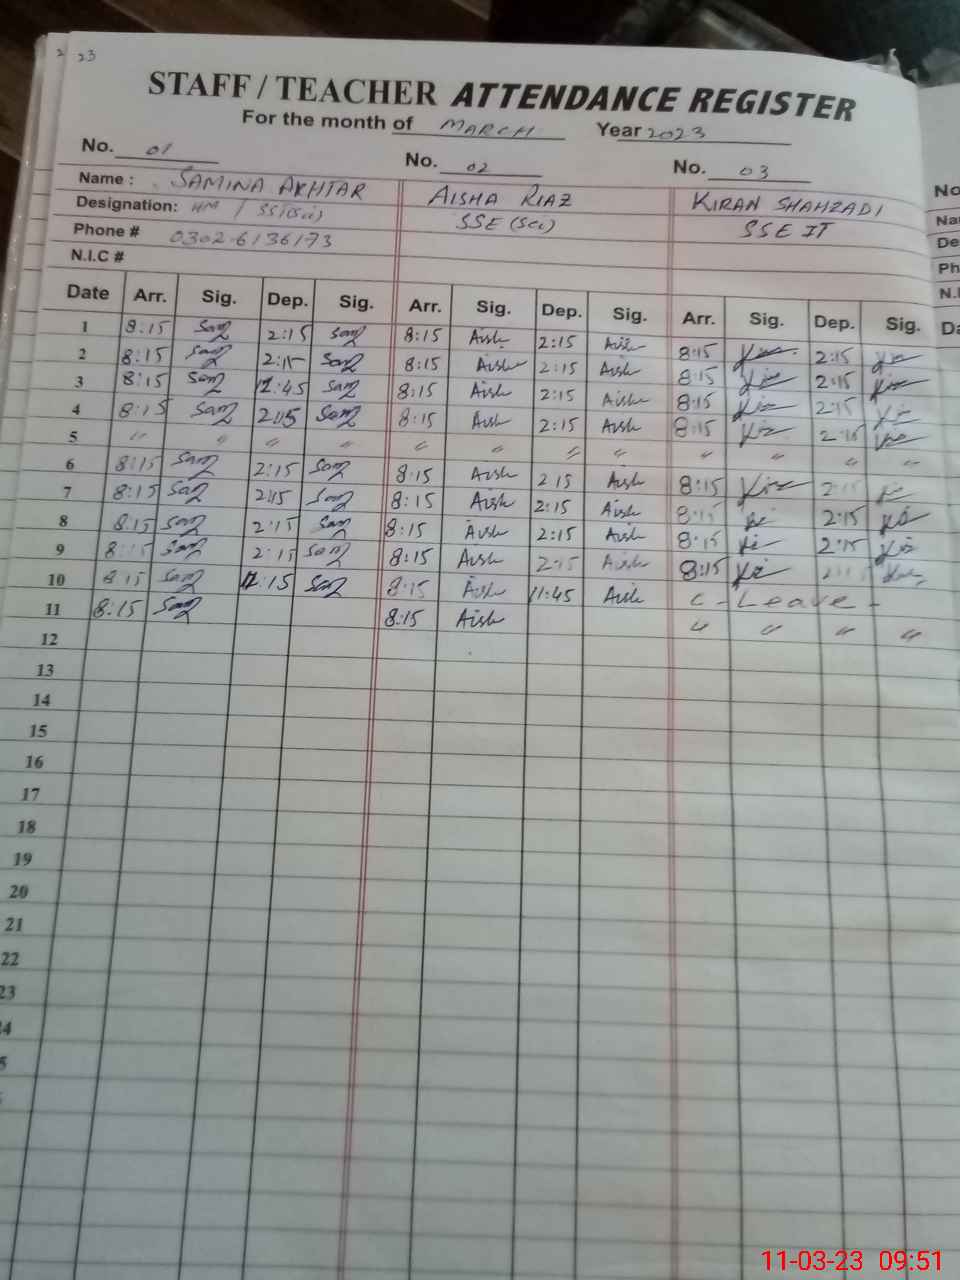 23
STAFF / TEACHER ATTENDANCE REGISTER
For the month of MARCH Year 2023
No. 01 No. 02 No. 03
Name : SAMINA AKHTAR AISHA RIAZ KIRAN SHAHZADI
Designation: HM / SS(Sci) SSE (Sci) SSE IT
Phone # 0302-6136173
N.I.C #
Date Arr. Sig. Dep. Sig. Arr. Sig. Dep. Sig. Arr. Sig. Dep. Sig.
1 8:15 Sam 2:15 Sam 8:15 Aish 2:15 Aish 8:15 2:15
2 8:15 Sam 2:15 Sam 8:15 Aish 2:15 Aish 8:15 2:15
3 8:15 Sam 12:45 Sam 8:15 Aish 2:15 Aish 8:15 2:15
4 8:15 Sam 2:15 Sam 8:15 Aish 2:15 Aish 8:15 2:15
5 " " " " " " " " " " " "
6 8:15 Sam 2:15 Sam 8:15 Aish 2 15 Aish 8:15 2:15
7 8:15 Sam 2:15 Sam 8:15 Aish 2:15 Aish 8:15 2:15
8 8:15 Sam 2:15 Sam 8:15 Aish 2:15 Aish 8:15 2:15
9 8:15 Sam 2:15 Sam 8:15 Aish 2:15 Aish 8:15
10 8:15 Sam 12:15 Sam 8:15 Aish 11:45 Aish C - Leave -
11 8:15 Sam 8:15 Aish " " " "
12
13
14
15
16
17
18
19
20
21
22
23
No
Na
De
Ph
N.I
Da
11-03-23 09:51